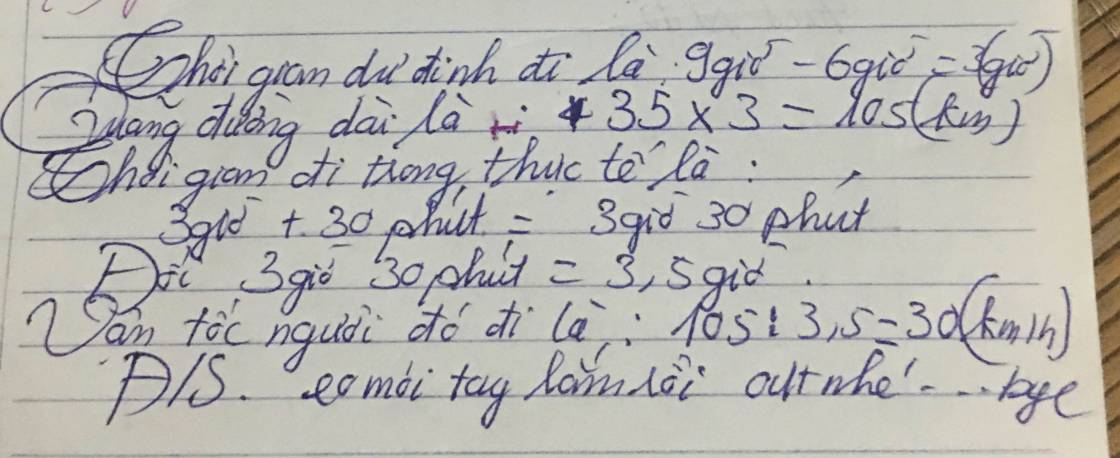 Thời gian dự định đi là: 9giờ - 6giờ = 3(giờ)
Quãng đường dài là : 35 x 3 = 105(km)
Thời gian đi trong thực tế là :
3giờ + 30 phút = 3giờ 30 phút
Đổi 3giờ 30 phút = 3,5giờ.
Vận tốc người đó đi là : 105 : 3,5 = 30(km/h)
Đ/S. eo mỏi tay lắm rồi out nhé - ... bye